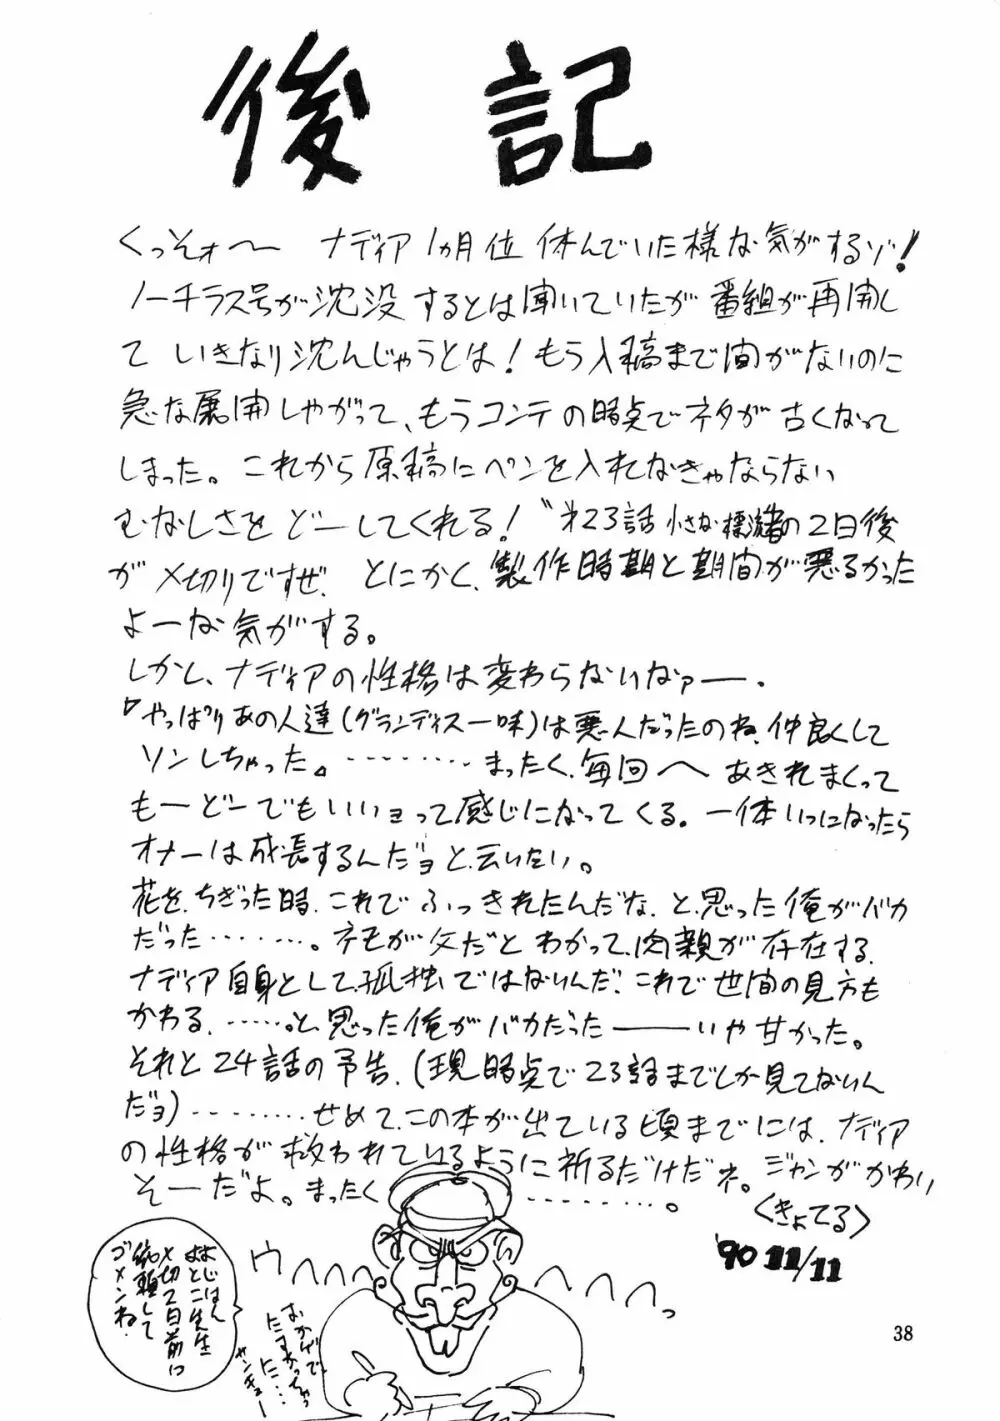 後記
くっそォ〜 ナディア1ヵ月位休んでいた様な気がするゾ!
ノーチラス号が沈没するとは聞いていたが番組が再開し
て いきなり沈んじゃうとは!もう入稿まで間がないのに
急な展開しやがって、もうコンテの時点でネタが古くなって
しまった。これから原稿にペンを入れなきゃならない
むなしさをどーしてくれる!〝第23話 小さな標流者の2日後
が〆切りですぜ、とにかく、製作時期と期間が悪るかった
よーな気がする。
しかし、ナディアの性格は変わらないなァー、
「やっぱりあの人達(グランディス一味)は悪人だったのね、仲良くして
ソンしちゃった。」‥‥‥‥まったく、毎回へあきれまくって
もーどーでもいいョって感じになってくる。一体いつになったら
オナーは成長するんだョと、云いたい。
花を、ちぎった時、これでふっきれたんだな、と、思った俺がバカ
だった‥‥‥。ネモが父だとわかって、肉親が存在する、
ナディア自身として、孤独ではないんだ、これで世間の見方も
かわる、‥‥‥。と、思った俺がバカだった——いや甘かった。
それと24話の予告、(現時点で23話までしか見てないん
だョ)‥‥‥‥せめて、この本が出ている頃までには、ナディア
の性格が救われているように祈るだけだネ。ジャンがかわい
そーだよ。まったく‥‥‥‥。
<きょてる>
'90 11/11
ウヘヘヘヘ
ヘヘヘヘっ
よじはん
よとこ先生
〆切2日前に
依頼して
ゴメンね。
おかげで、
たすかっちゃっ
た‥‥
サンキュー
38